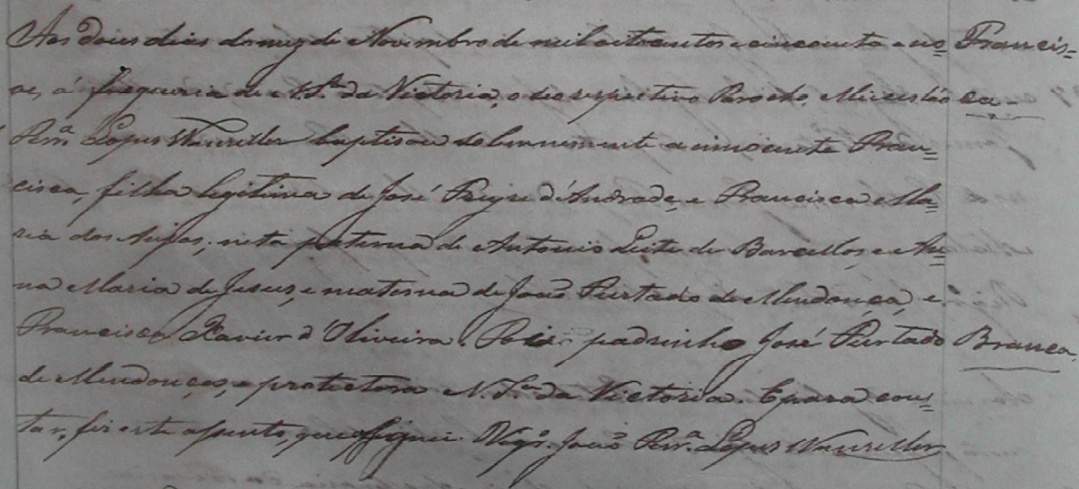 Aos dous dias do mez de Novembro de mil oitocentos e cincoenta e no= Francis=
ve, á freguezia de N. Sra. da Victoria, o seo respectivo Parocho, ca.
Lopes baptisou solemnemente a innocente Fran=
cisca, filha legitima de José d'Andrade, e Francisca Ma=
ria dos Anjos; neta paterna de Antonio Leite de Barcellos, e An=
na Maria de Jesus, e materna de João Furtado de Mendonça, e
Francisca Xavier d'Oliveira. padrinho José Furtado Branca.
de Mendonça, e protectora N. Sra. da Victoria. E para cons=
tar, fiz este assento, que assignei. Vigo. João Lopes